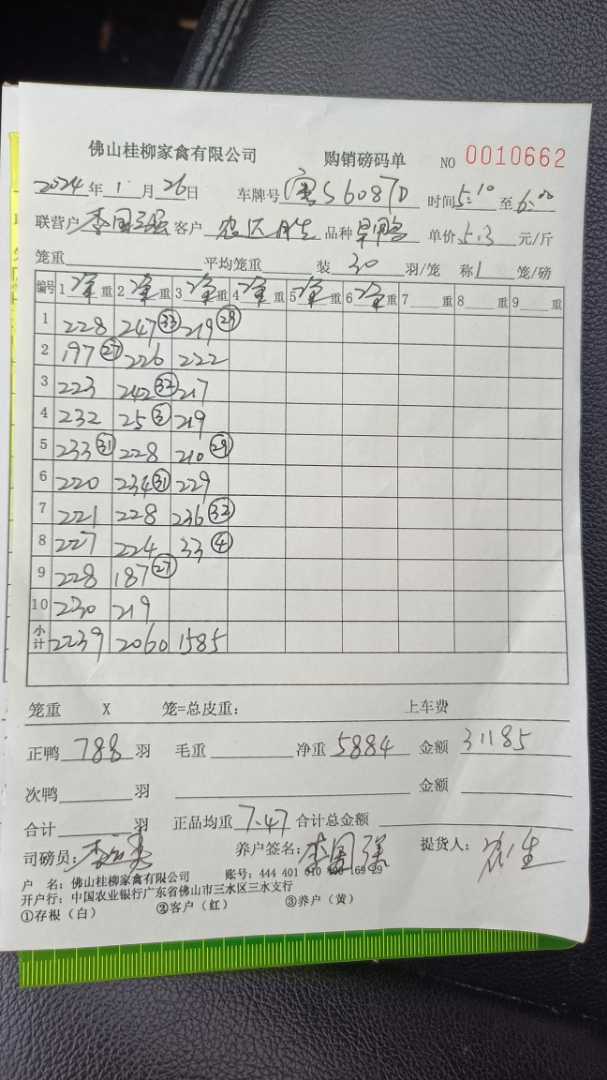 佛山桂柳家禽有限公司 购销磅码单 NO 0010662
2024年1月26日 车牌号 S6087D 时间5:10至6:00
联营户李国强 客户 品种旱鸭 单价5.3元/斤
笼重 平均笼重 装30羽/笼 称1笼/磅
编号 1净重 2净重 3净重 4净重 5净重 6净重 7 重 8 重 9 重
1 228 247㉝ 219㉙
2 197㉗ 226 222
3 223 242㉜ 217
4 232 25③ 219
5 233㉛ 228 210㉙
6 220 234㉛ 229
7 221 228 236㉜
8 227 224 33④
9 228 187㉗
10 230 219
小计 2239 2060 1585
笼重 X 笼=总皮重: 上车费
正鸭788羽 毛重 净重5884 金额31185
次鸭 羽 金额
合计 羽 正品均重7.47 合计总金额
司磅员: 养户签名:李国强 提货人:
户 名: 佛山桂柳家禽有限公司 账号: 444 401 010 400 169 29
开户行: 中国农业银行广东省佛山市三水区三水支行
①存根(白) ②客户(红) ③养户(黄)